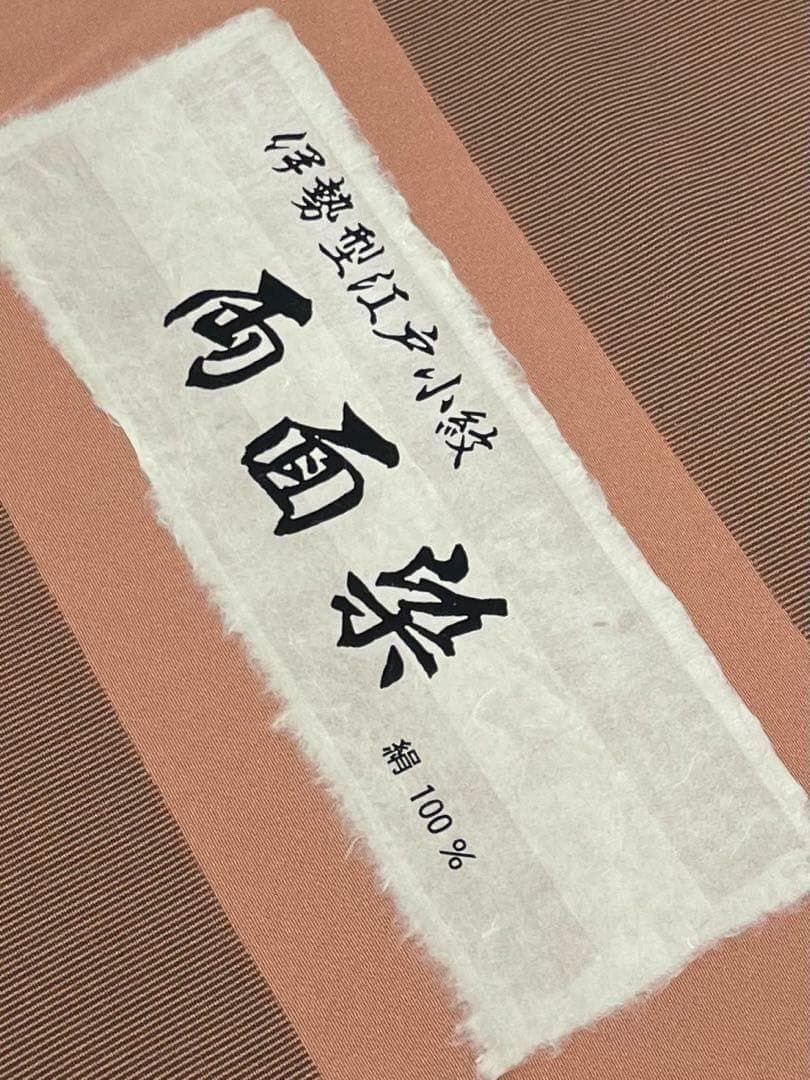 伊勢型江戸小紋
両面染
絹100%